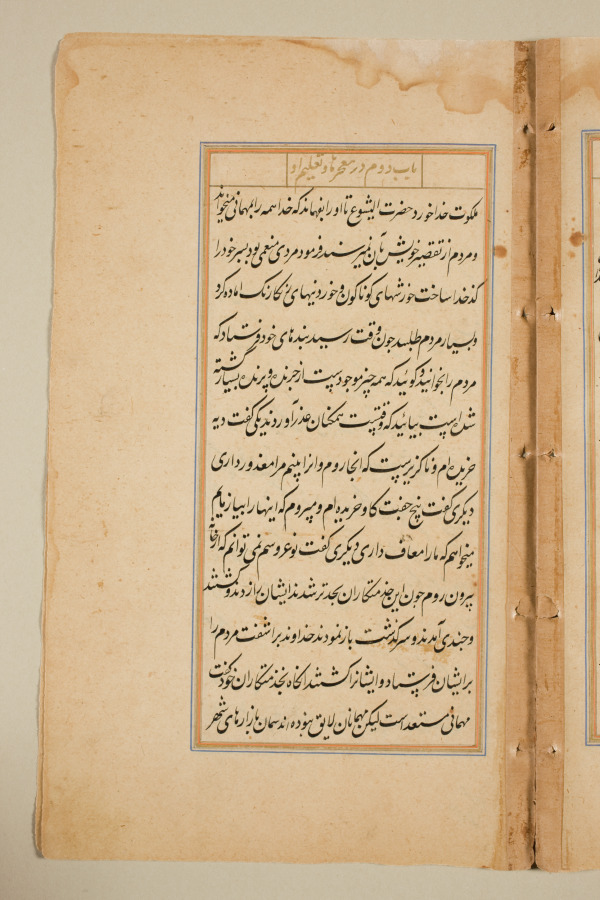 باب دوم در معجزها و تعلیم او
ملکوت خدا خورد حضرت ایشوع تا او را بفهماند که خدا همه را بمهمانی میخواند
و مردم از تقصیر خویش بآن نمیرسند فرمود مردی منعمی بود بسر خود را
کدخدا ساخت خورشهای کوناکون و خوردنیهای رنکارنک اماده کرد
و بسیار مردم طلبید جون وقت رسید بندهای خود فرستاد که
مردم را بخوانید و کوئید که همه چیز موجودست از جرنده و پرنده بسیار کشته
شده است بیائید که وقتست همکنان عذر آوردند یکی کفت دیه
خریده ام و ناکزیرست که انجا روم و انرا بینم مرا معذور داری
دیکری کفت پنج جفت کاو خریده ام و میروم که اینها را بیازمایم
میخواهم که مارا معاف داری دیکری کفت نوعروسم نمی توانم که از خانه
بیرون روم جون این خدمتکاران بجدتر شدند ایشان را زدند و کشتند
و جندی آمدند و سرکذشت باز نمودند خداوند براشفت مردم را
بر ایشان فرستاد و ایشانرا کشتند انکاه بخدمتکاران خود کفت
مهمانی مستعد است لیکن مهمانان لایق نبوده اند سمان بازارهای شهر